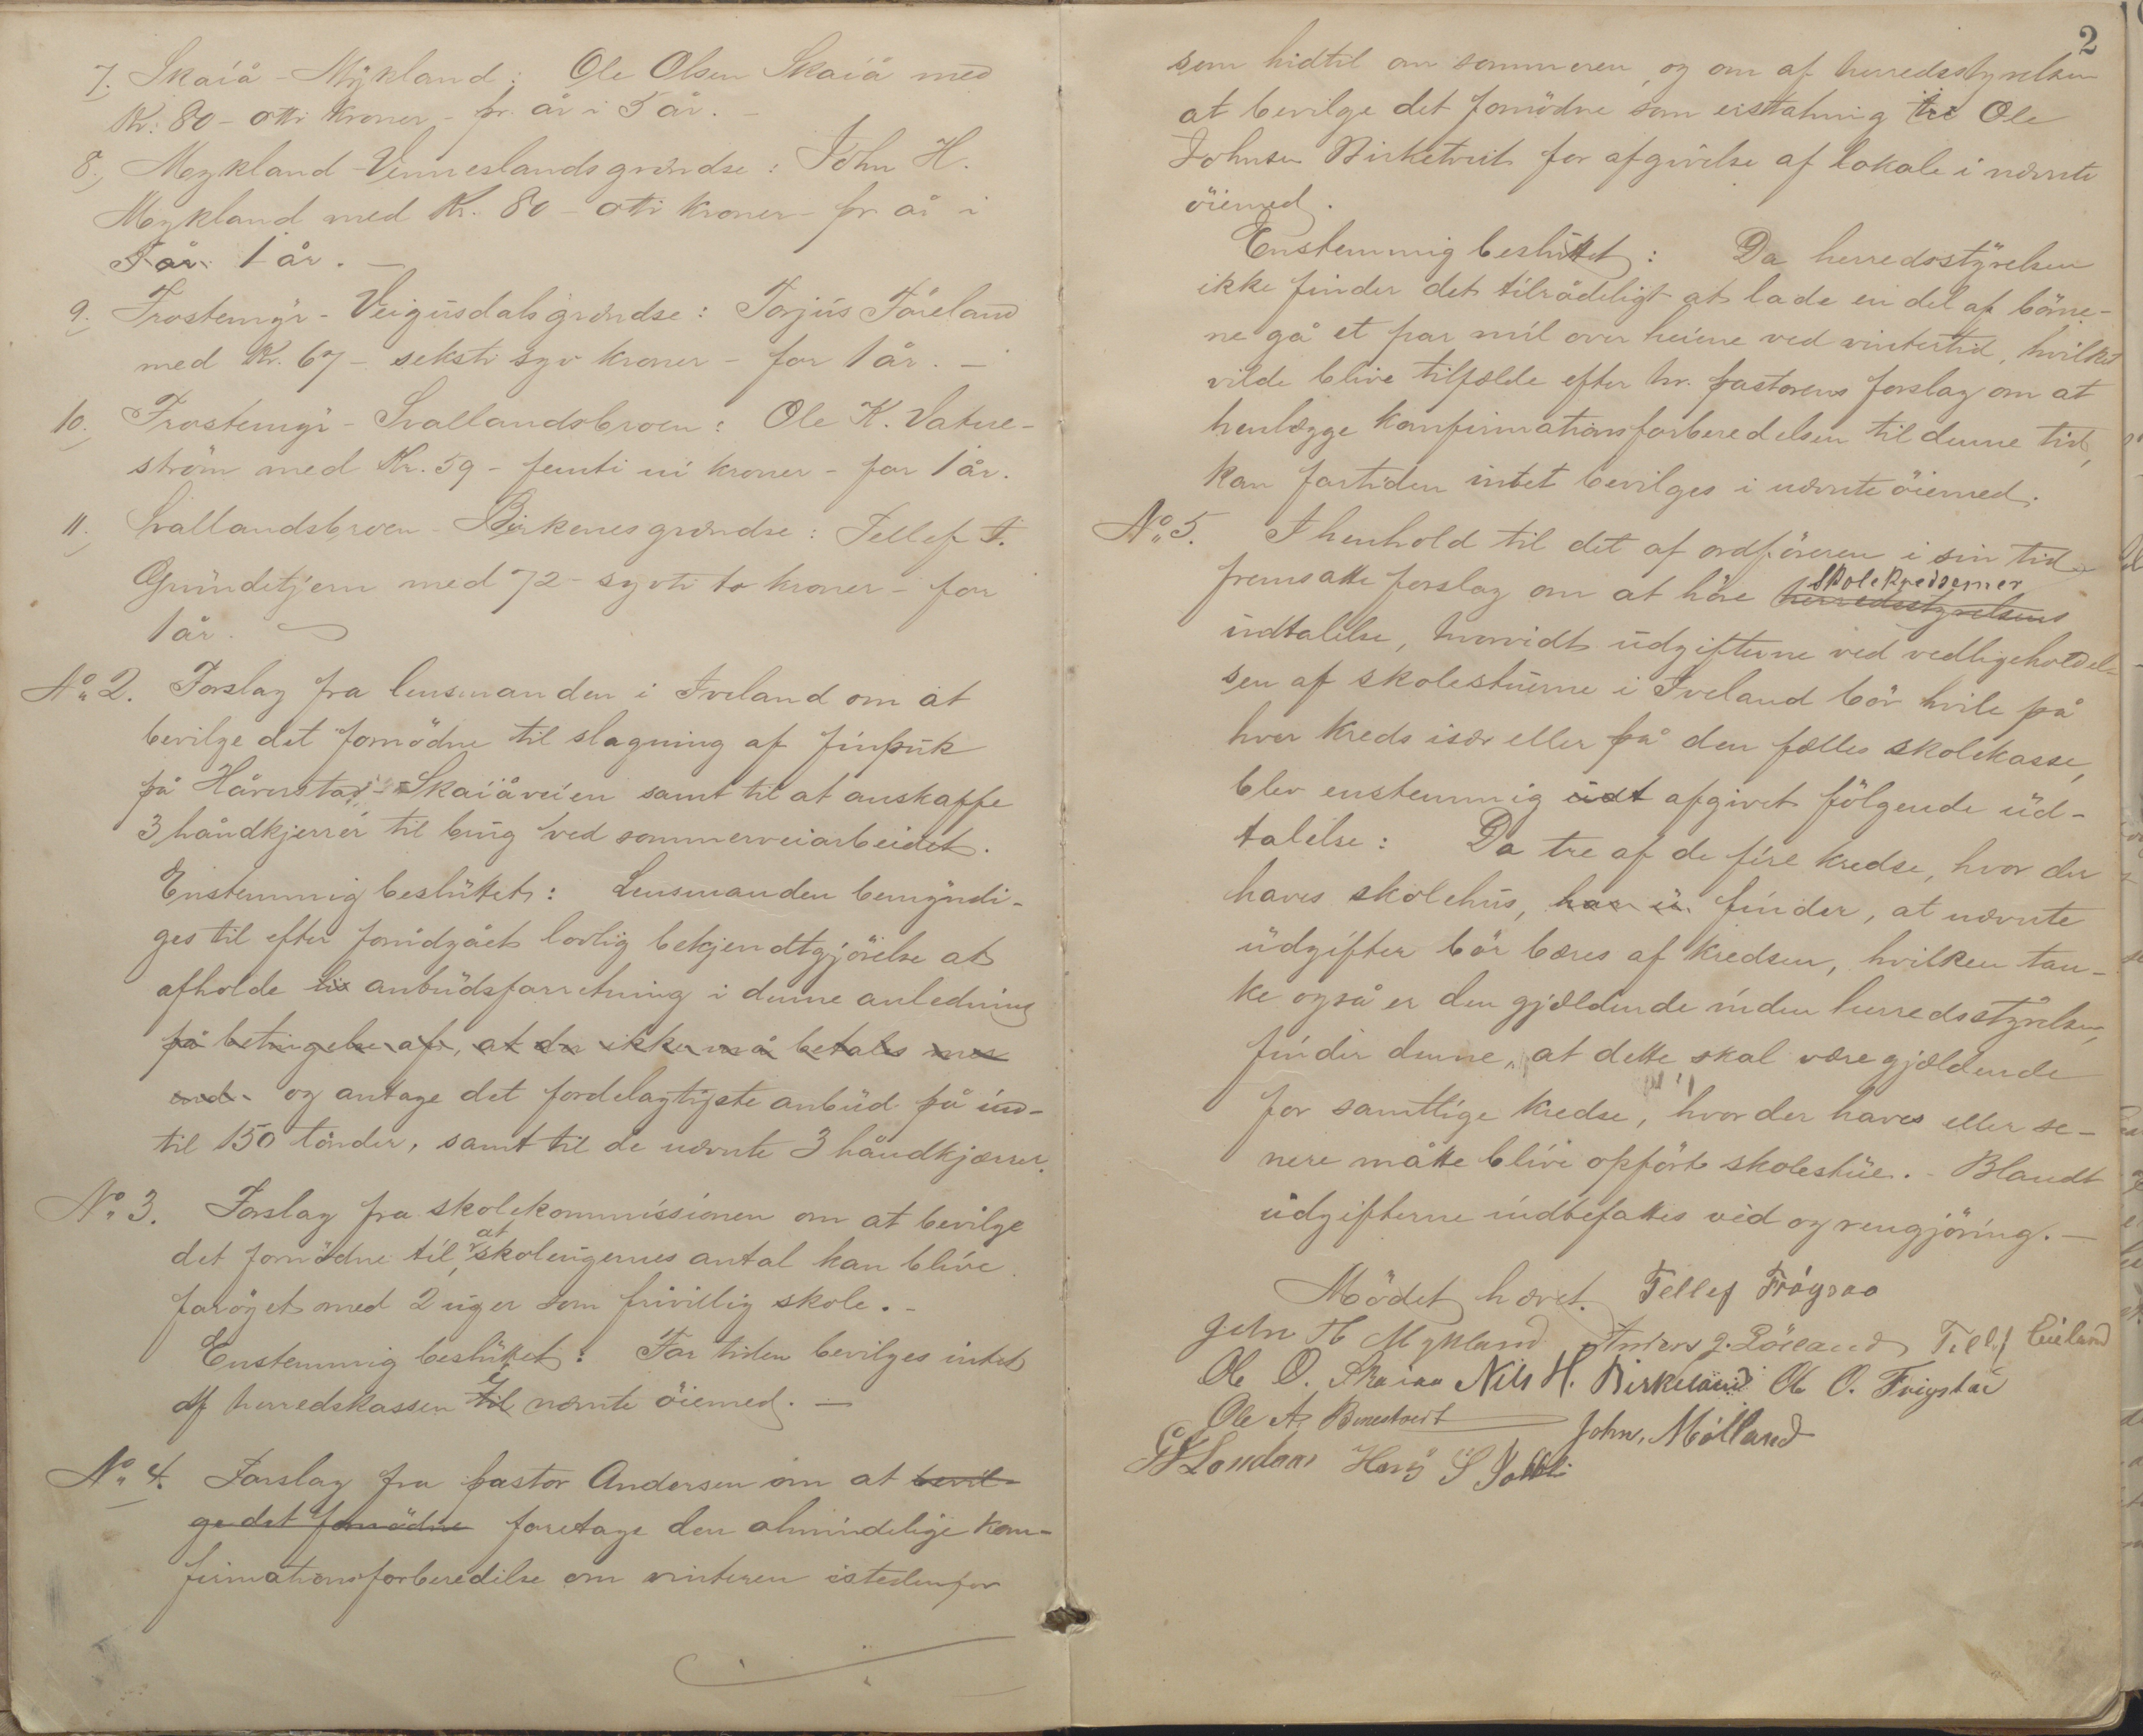 7. Skaiå - Mykland: Ole Olsen Skaiå med
Kr. 80 - otti kroner - pr. år i 5 år. -
8. Mykland - Venneslands grændse: John H.
Mykland med Kr. 80 - otti kroner - pr. år i
5 år. 1 år. -
9. Frostemyr - Veigusdals grændse: Torjus Töreland
med Kr. 67 - seksti syv kroner - for 1 år. -
10. Frostemyr - Svallandsbroen: Ole K. Vatne-
ström med Kr. 59 - femti ni kroner - for 1 år.
11. Svallandsbroen - Birkenes grændse: Tellef T.
Grundetjern med 72 - sytti to kroner - for
1 år.
No 2. Forslag fra lensmanden i Iveland om at
bevilge det fornödne til slagning af finpuk
på Håverstad - Skaiåveien samt til at anskaffe
3 håndkjerrer til brug ved sommerveiarbeidet.
Enstemmig besluttet: Lensmanden bemyndi-
ges til efter forudgået lovlig bekjendtgjörelse at
afholde anbudsforretning i denne anledning
på betingelse af, at der ikke må betales mer
end og antage det fordelagtigste anbud på ind-
til 150 tönder, samt til de nævnte 3 håndkjærrer.
No 3. Forslag fra skolekommissionen om at bevilge
det fornödne til, at skoleugernes antal kan blive
foröget med 2 uger som frivillig skole. -
Enstemmig besluttet: For tiden bevilges intet
af herredskassen til nævnte öiemed. -
No 4. Forslag fra pastor Andersen om at bevil-
ge det fornödne foretage den almindelige kon-
firmationsforberedelse om vinteren istedenfor
2
som hidtil om sommeren, og om af herredsstyrelsen
at bevilge det fornödne som erstatning til Ole
Johnsen Birketveit for afgivelse af lokale i nævnte
öiemed.
Enstemmig besluttet: Da herredsstyrelsen
ikke finder det tilrådeligt at lade en del af börne-
ne gå et par mil over heiene ved vintertid, hvilket
vilde blive tilfælde efter hr. pastorens forslag om at
henlægge konfirmationsforberedelsen til denne tid,
kan fortiden intet bevilges i nævnte öiemed.
No 5. I henhold til det af ordföreren i sin tid
fremsatte forslag om at höre herredsstyrelsens skolekredsernes
udtalelse, hvorvidt udgifterne ved vedligeholdel-
sen af skolestuerne i Iveland bör hvile på
hver kreds især eller på den fælles skolekasse,
blev enstemmig udt afgivet fölgende ud-
talelse: Da tre af de fire kredse, hvor der
haves skolehus, har u finder, at nævnte
udgifter bör bæres af kredsen, hvilken tan-
ke også er den gjældende inden herredsstyrelsen,
finder denne, at dette skal være gjældende
for samtlige kredse, hvor der haves eller se-
nere måtte blive opfört skolestue. - Blandt
udgifterne indbefattes ved og rengjöring. -
Mödet hævet. Tellef Fröysaa
John H Mykland Anders J. Tellef Eieland
Ole O. Skaiaa Nils H. Birkeland Ole O. Frigstad
Ole A. John. Mölland
Hans S